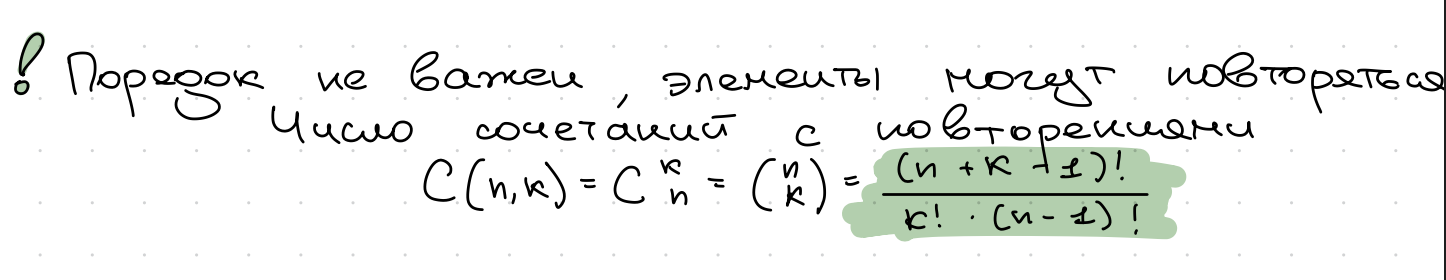 ! Порядок не важен, элементы могут повторяться
Число сочетаний с повторениями
C(n,k) = C^k_n = (n k) = (n + k - 1)! / k! · (n - 1)!